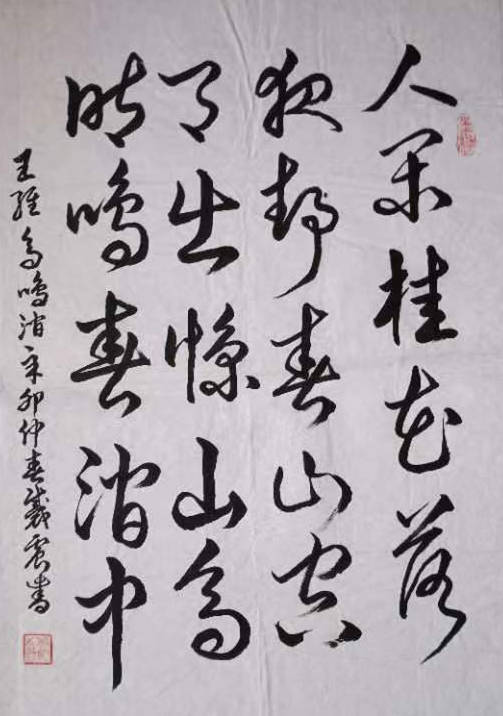 人闲桂花落
夜静春山空
月出惊山鸟
时鸣春涧中
王维鸟鸣涧辛卯仲春戴震书